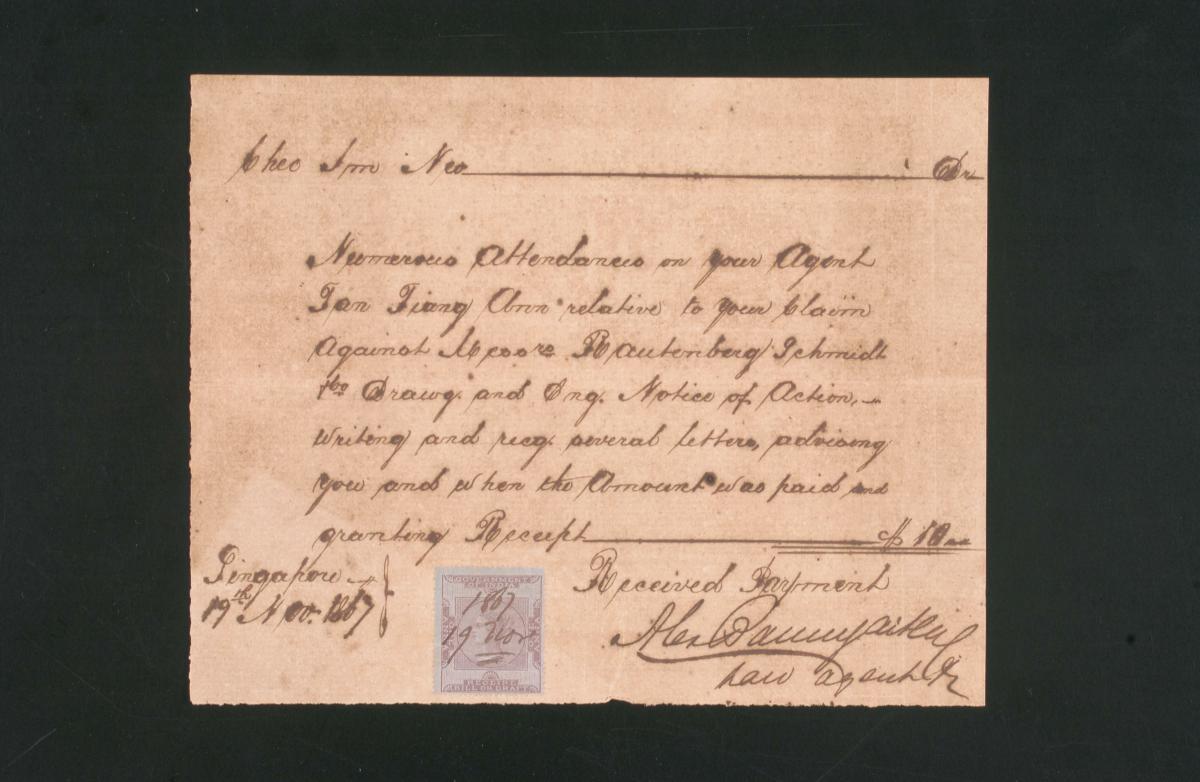 Cheo Im Neo Dr
Numerous Attendances on your Agent
Tan Tiang Ann relative to your Claim
against Messrs Rautenberg Schmidt
Drawg. and Eng. Notice of Action,
writing and recg. several letters, advising
you and when the Amount was paid and
granting Receipt $ 10
Singapore
19th Nov. 1867
Received Payment
Alex
Law agent
GOVERNMENT
OF INDIA
1867
19 Nov
RECEIPT
BILL OR DRAFT